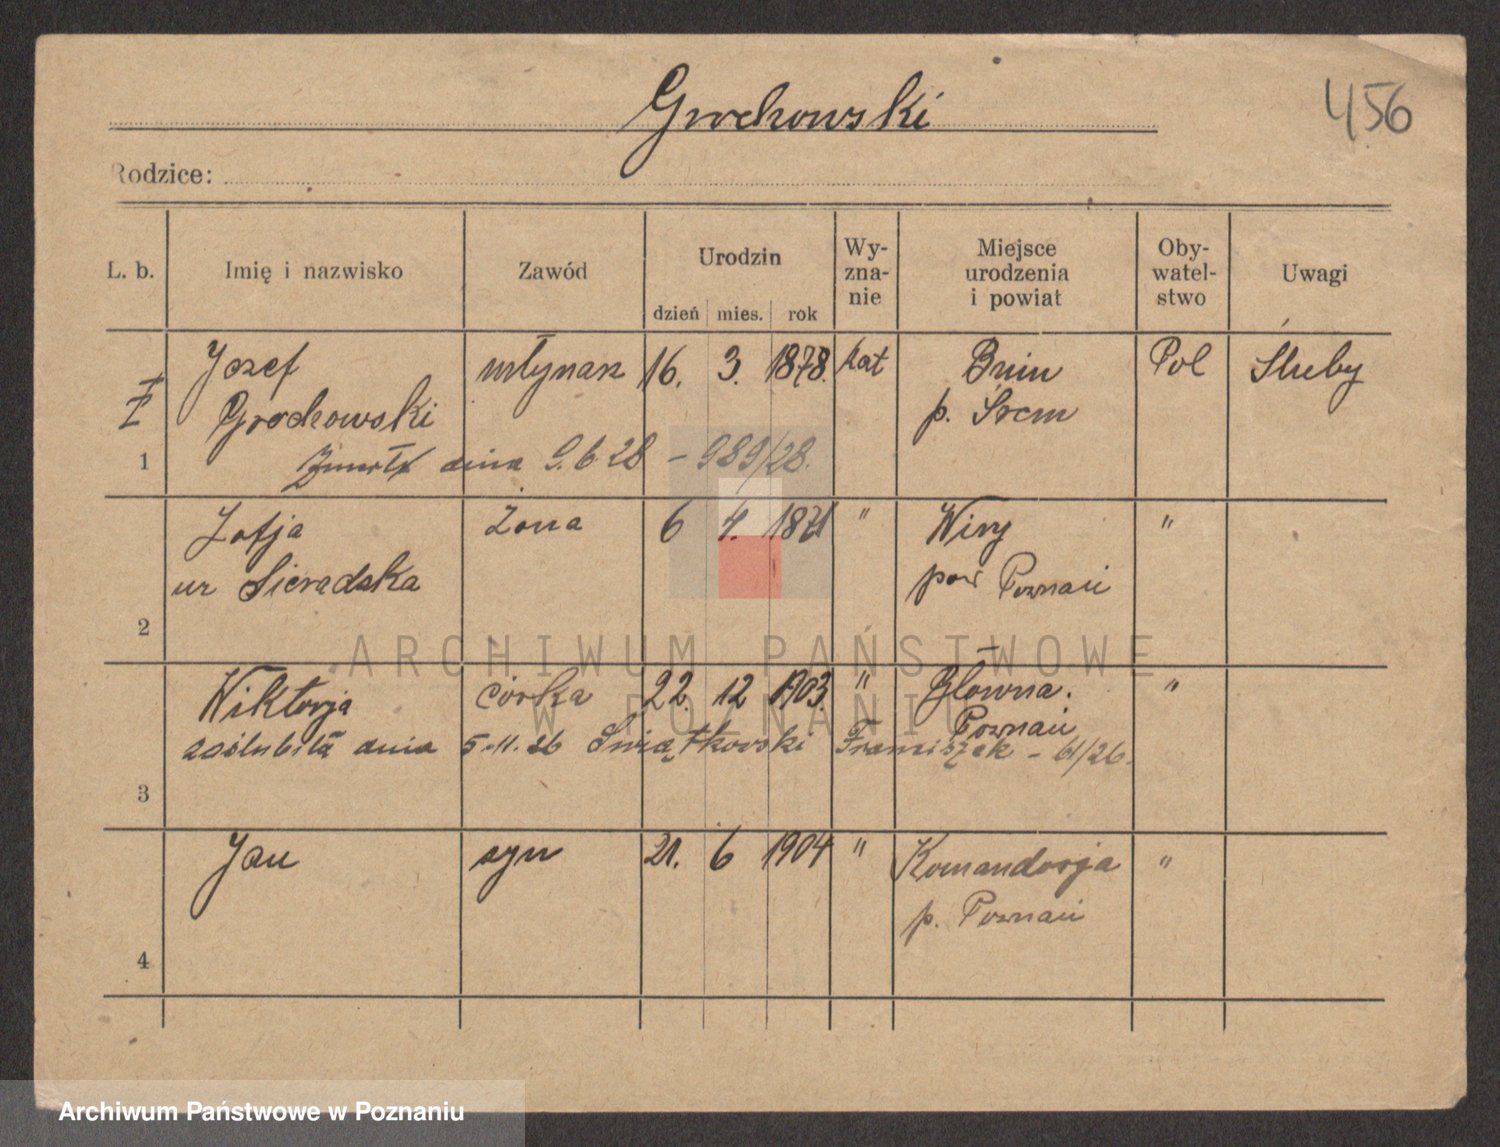 Grochowski
456
Rodzice:
L. b. Imię i nazwisko Zawód Urodzin dzień mies. rok Wy-zna-nie Miejsce urodzenia i powiat Oby-watel-stwo Uwagi
Jozef młynarz 16. 3. 1878. kat Bnin Pol Śluby
Grochowski p. Śrem
1 Zmarł dnia 9.6 28 – 989/28.
Zofja żona 6 4. 1871 " Wiry "
ur Sieradzka pow Poznań
2
Wiktorja córka 22. 12 1903. " Główna. "
Poznań
zaślubiła dnia 5.11.26 Świątkowski Franciszek – 61/26.
3
Jan syn 21. 6 1904 " Komandorja "
p. Poznań
4
ARCHIWUM PAŃSTWOWE
W POZNANIU
Archiwum Państwowe w Poznaniu